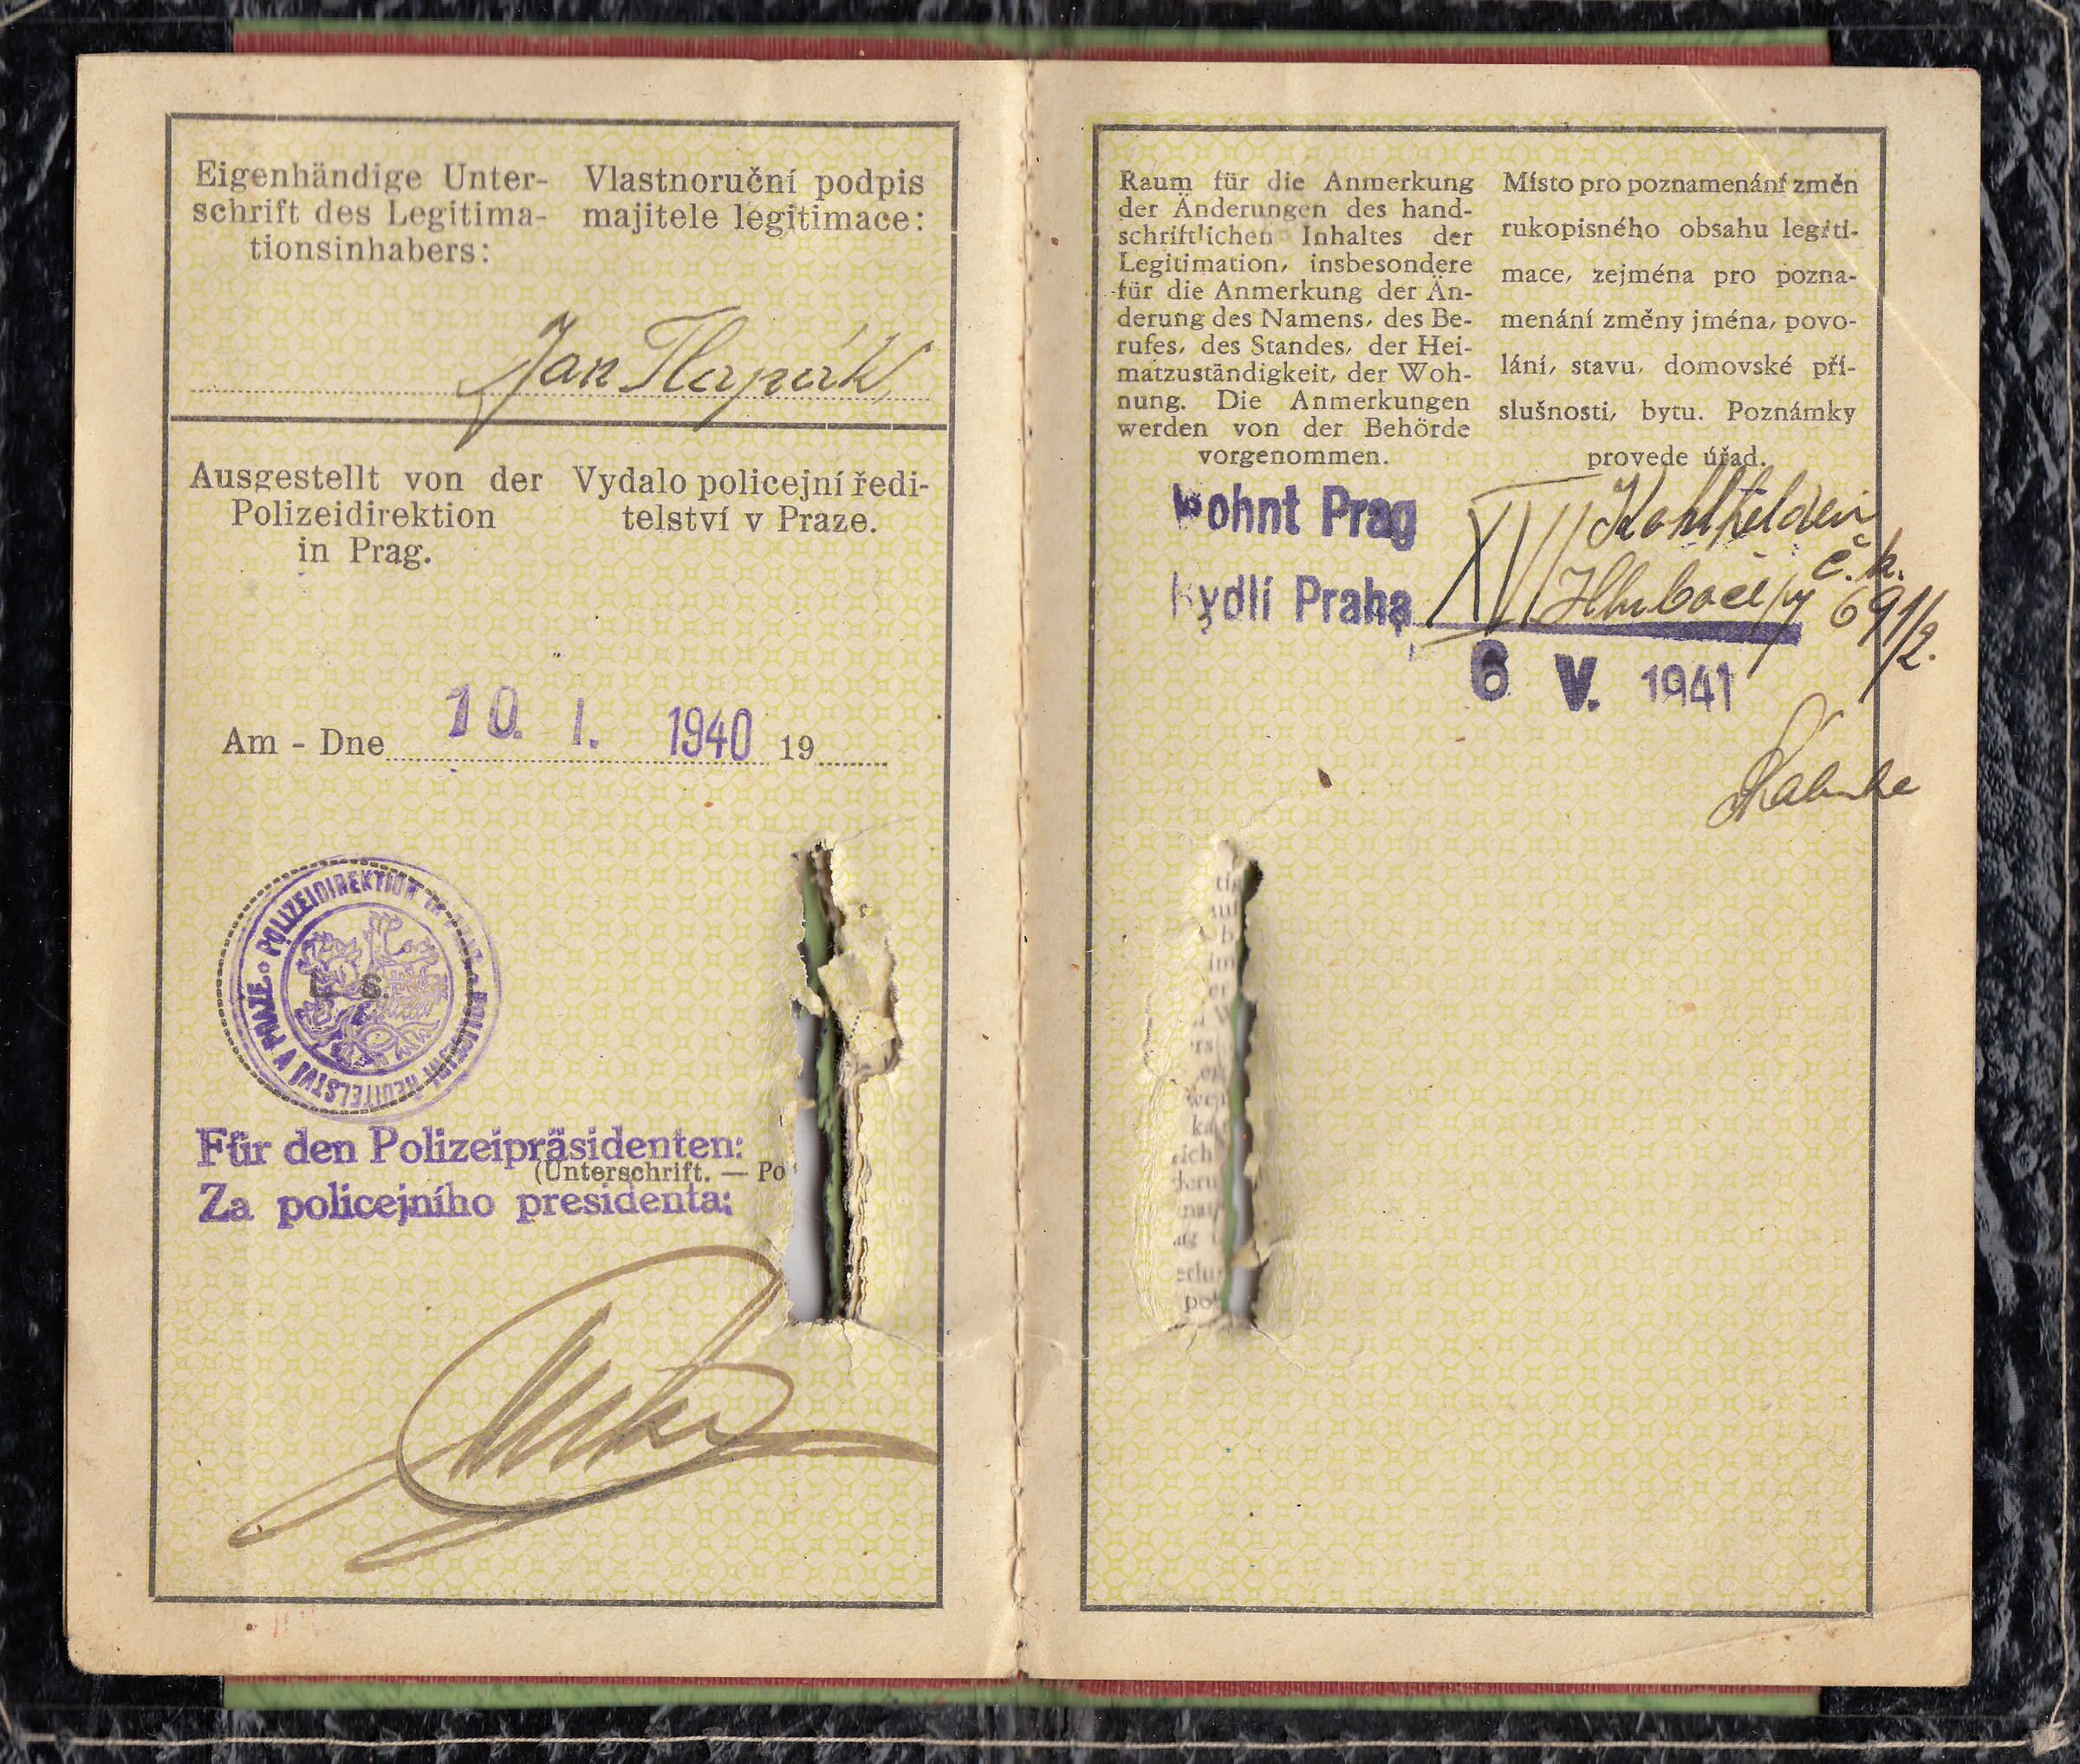 Eigenhändige Unter-
schrift des Legitima-
tionsinhabers:
Vlastnoruční podpis
majitele legitimace:
Jan
Ausgestellt von der
Polizeidirektion
in Prag.
Vydalo policejní ředi-
telství v Praze.
Am - Dne 10. I. 1940 19
POLIZEIDIREKTION IN PRAG • POLICEJNÍ ŘEDITELSTVÍ V PRAZE •
Für den Polizeipräsidenten:
(Unterschrift. — Po
Za policejního presidenta:
Raum für die Anmerkung
der Änderungen des hand-
schriftlichen Inhaltes der
Legitimation, insbesondere
für die Anmerkung der Än-
derung des Namens, des Be-
rufes, des Standes, der Hei-
matzuständigkeit, der Woh-
nung. Die Anmerkungen
werden von der Behörde
vorgenommen.
Místo pro poznamenání změn
rukopisného obsahu legiti-
mace, zejména pro pozna-
menání změny jména, povo-
lání, stavu, domovské pří-
slušnosti, bytu. Poznámky
provede úřad.
wohnt Prag XVI
bydlí Praha Hlubočepy
č. p.
691/2.
6 V. 1941